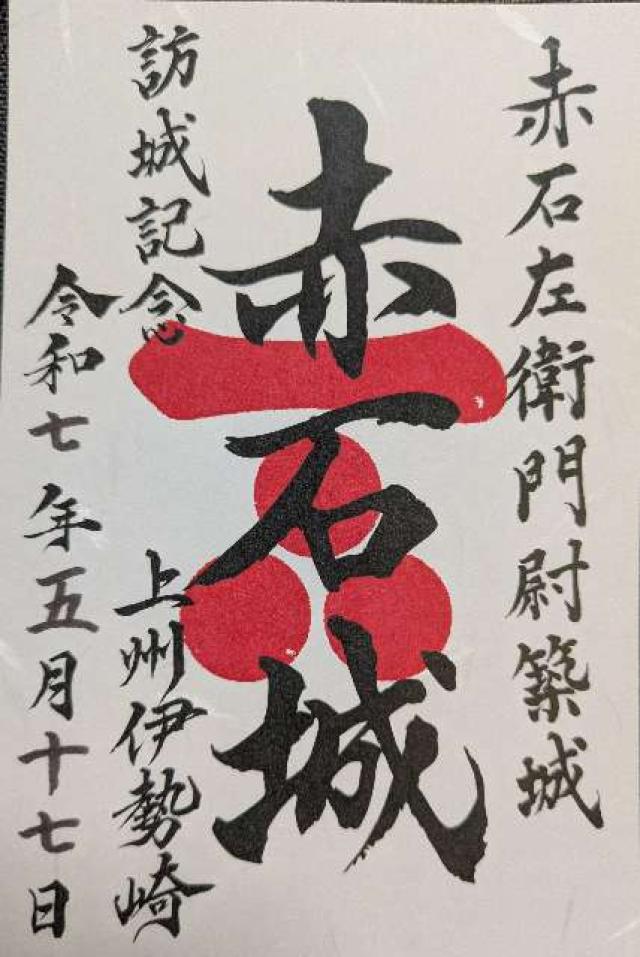 赤石左衛門尉築城
赤石城
訪城記念
上州伊勢崎
令和七年五月十七日